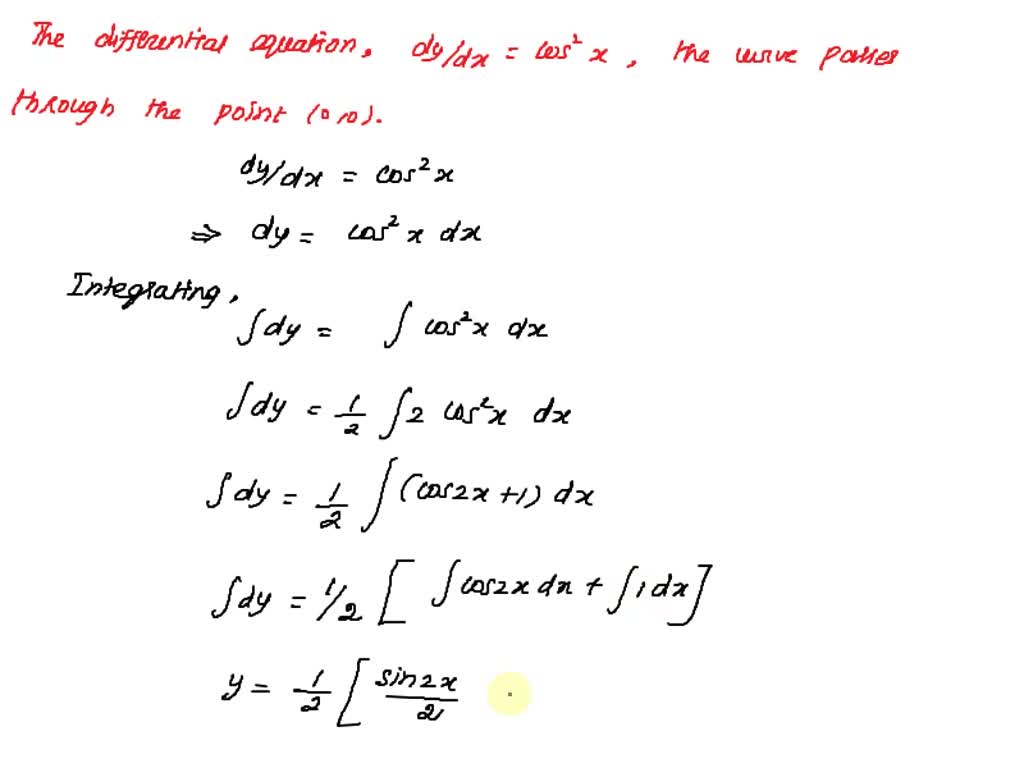 The differential equation, dy/dx = cos² x, the curve passes
through the point (0,0).
dy/dx = cos² x
⇒ dy = cos² x dx
Integrating,
∫ dy = ∫ cos² x dx
∫ dy = 1/2 ∫ 2 cos² x dx
∫ dy = 1/2 ∫ (cos2x + 1) dx
∫ dy = 1/2 [ ∫ cos2x dx + ∫ 1 dx ]
y = 1/2 [ sin2x/2